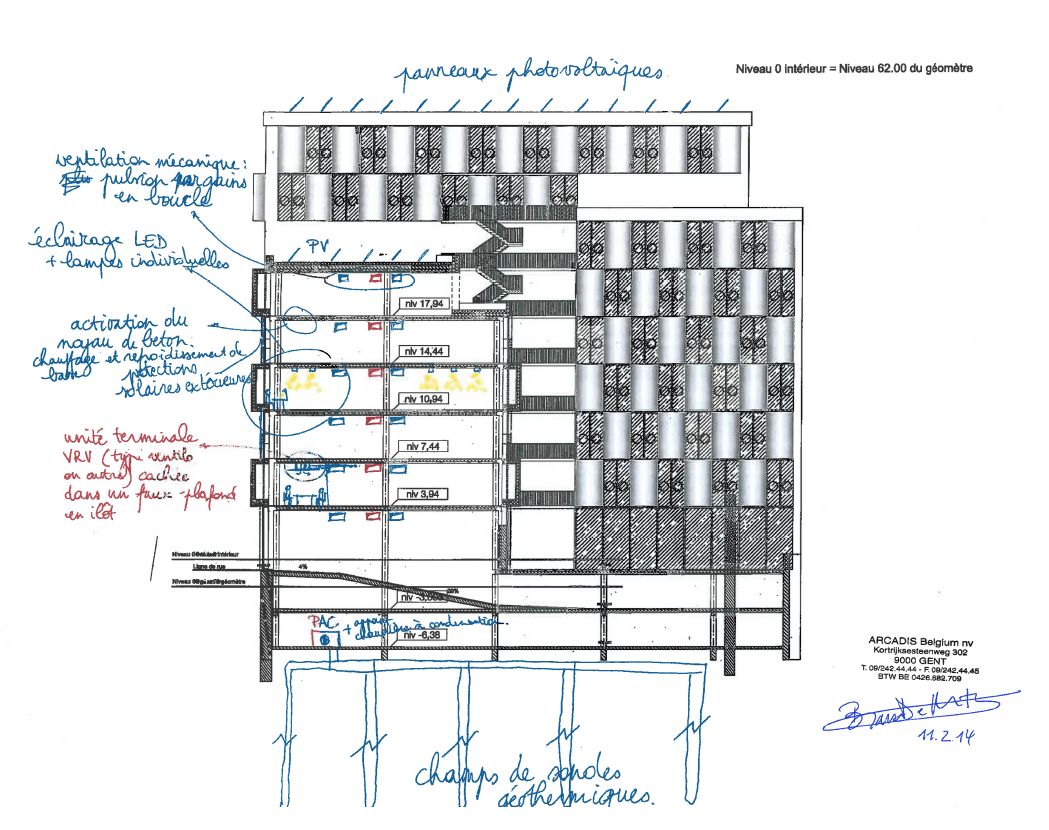 panneaux photovoltaïques.
Niveau 0 intérieur = Niveau 62.00 du géomètre
ventilation mécanique:
pulsion par gains
en boucle
éclairage LED
+ lampes individuelles
PV
niv 17,94
activation du
noyau de béton.
chauffage et refroidissement de
base
protections
solaires extérieures
niv 14,44
niv 10,94
unité terminale
VRV (type ventilo
ou autre) cachée
dans un faux-plafond
en îlot
niv 7,44
niv 3,94
Niveau intérieur
Ligne de rue
4%
Niveau géomètre
PAC
+ appoint
chaudière à condensation.
niv -6,38
ARCADIS Belgium nv
Kortrijksesteenweg 302
9000 GENT
T. 09/242.44.44 - F. 09/242.44.45
BTW BE 0426.682.709
11.2.14
champs de sondes
géothermiques.